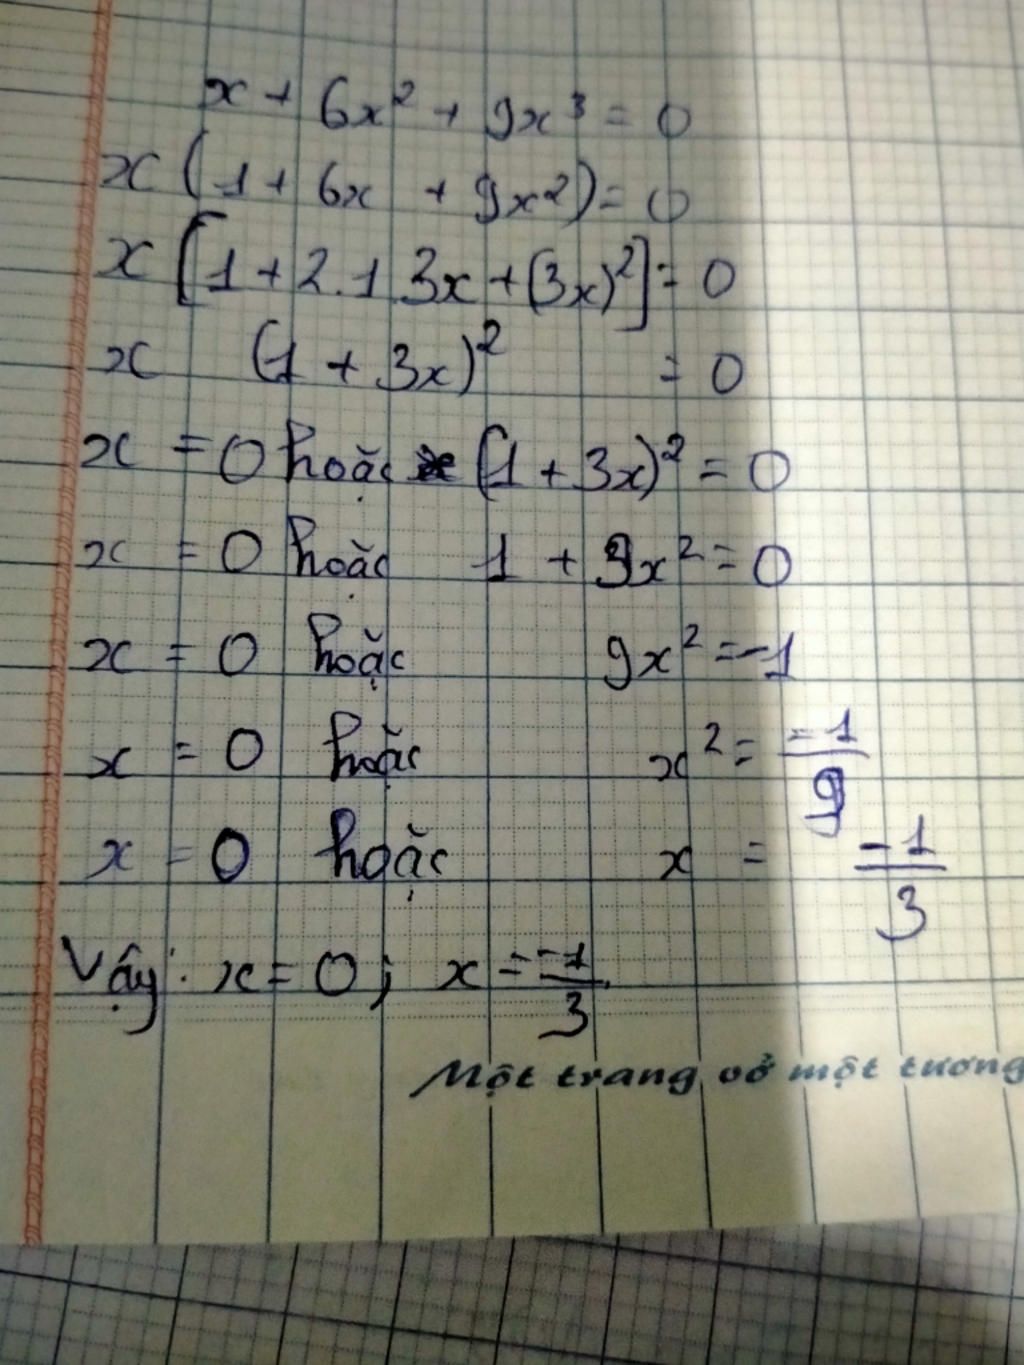 x + 6x² + 9x³ = 0
x (1 + 6x + 9x²) = 0
x [1 + 2.1.3x + (3x)²] = 0
x (1 + 3x)² = 0
x = 0 hoặc (1 + 3x)² = 0
x = 0 hoặc 1 + 9x² = 0
x = 0 hoặc 9x² = -1
x = 0 hoặc x² = -1/9
x = 0 hoặc x = -1/3
Vậy: x = 0; x = -1/3.
Một trang vở một tương